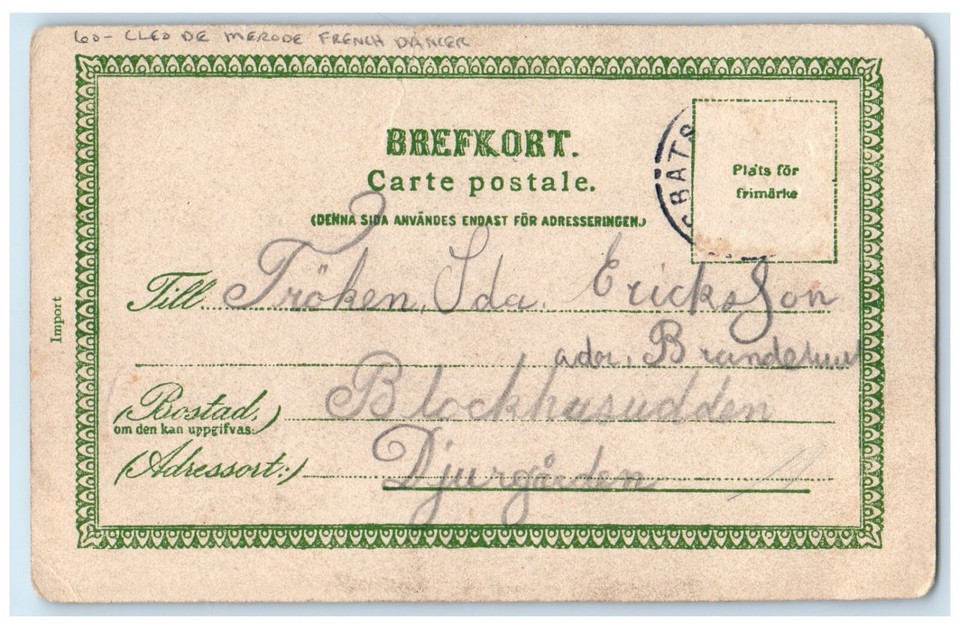 60- CLEO DE MERODE FRENCH DANCER
BREFKORT.
Carte postale.
(DENNA SIDA ANVÄNDES ENDAST FÖR ADRESSERINGEN.)
BATS
Plats för
frimärke
Till Fröken, Ida. Ericksson
adr. B
(Bostad,
om den kan uppgifvas:)
Blockhusudden
(Adressort:)
Djurgården
Import